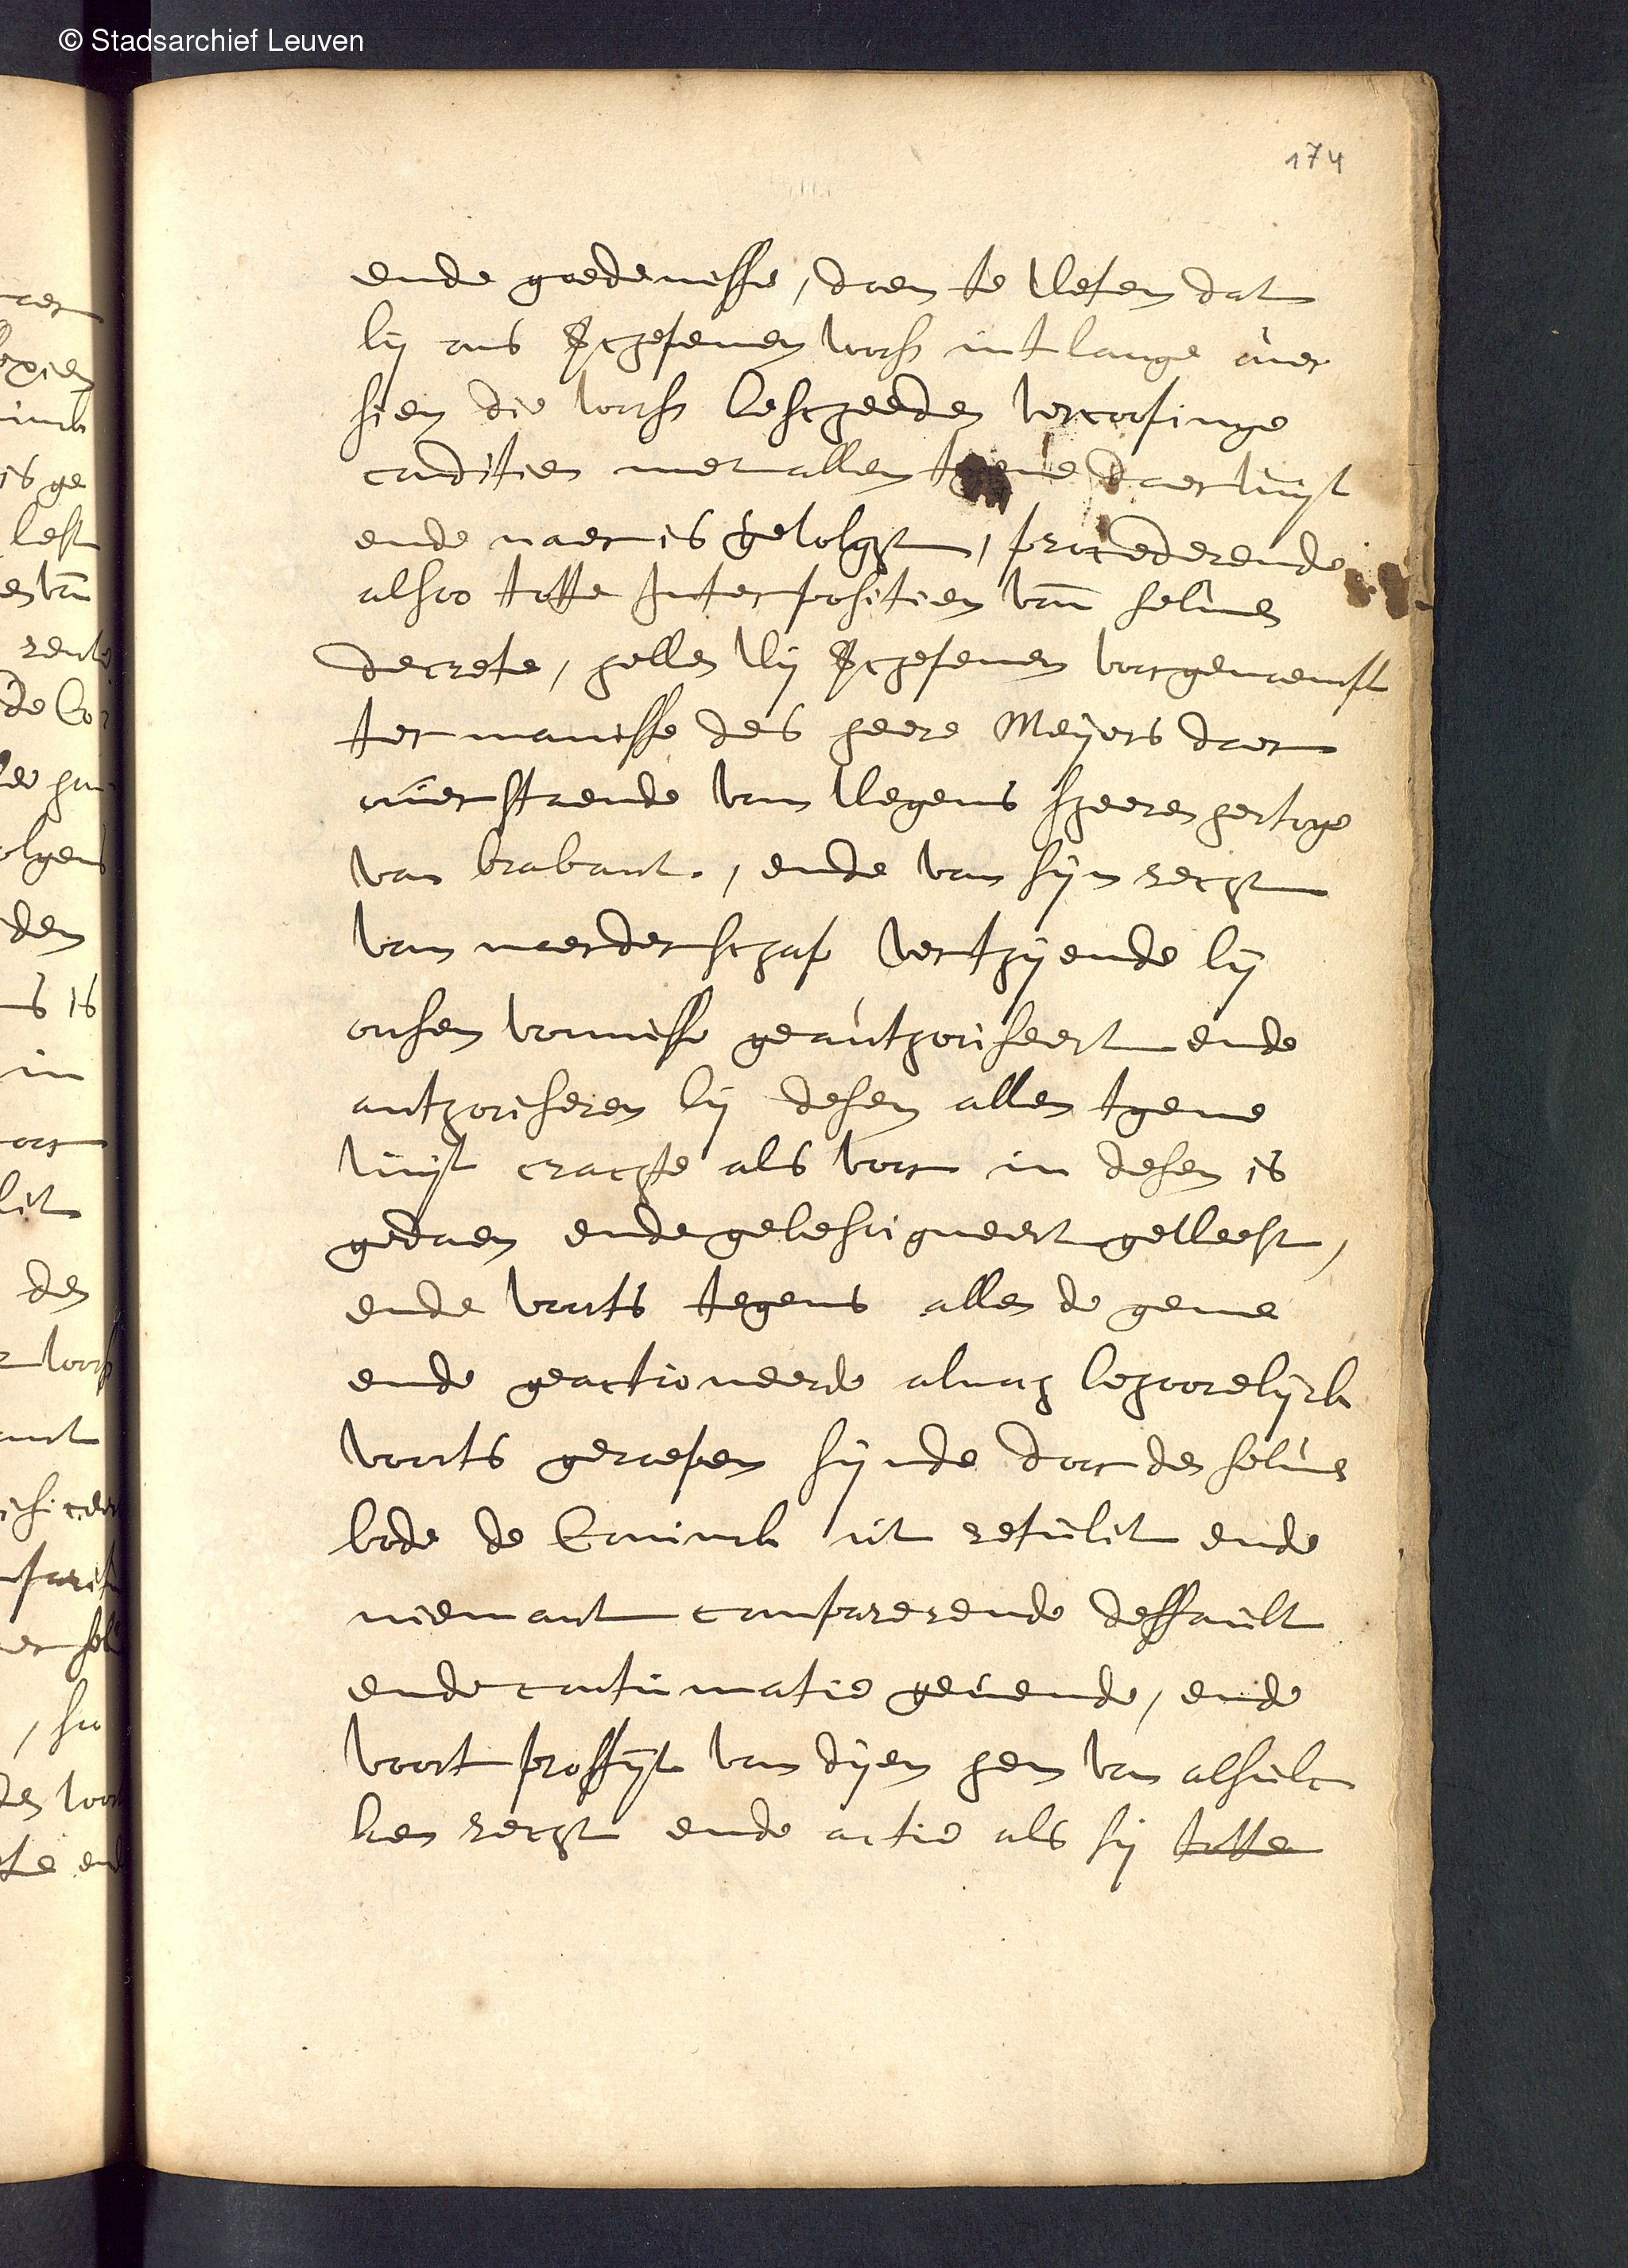 © Stadsarchief Leuven
174
ende goedenisse, doen te weten dat
bij ons Schepenen voors int lange over
sien die voors bescheeden vercoopinge
conditien met allen tgene daer wuyt
ende naer is gevolght, procederende
alsoo totte Interpositien van selven
decrete, hebben wij Schepenen voorgenoempt
ter manisse des heere Meyers daer
over staende van wegens sheeren hertoge
van brabant, ende van sijn recht
van naerderschap verthijende bij
onsen vonnisse geauthoriseert ende
authoriseren bij desen allen tgene
wuyt crachte als voor in desen is
gedaen ende gebesoigneert geweest,
ende voorts tegens allen de gene
ende geactioneerde alnoch behoorelijck
voorts geroepen sijnde door den selven
bode de Coninck ut retulit ende
niemant comparerende deffault
ende contumatie gevende, ende
voort proffijt van dijen hen van alsulc
ken recht ende actie als sij totte